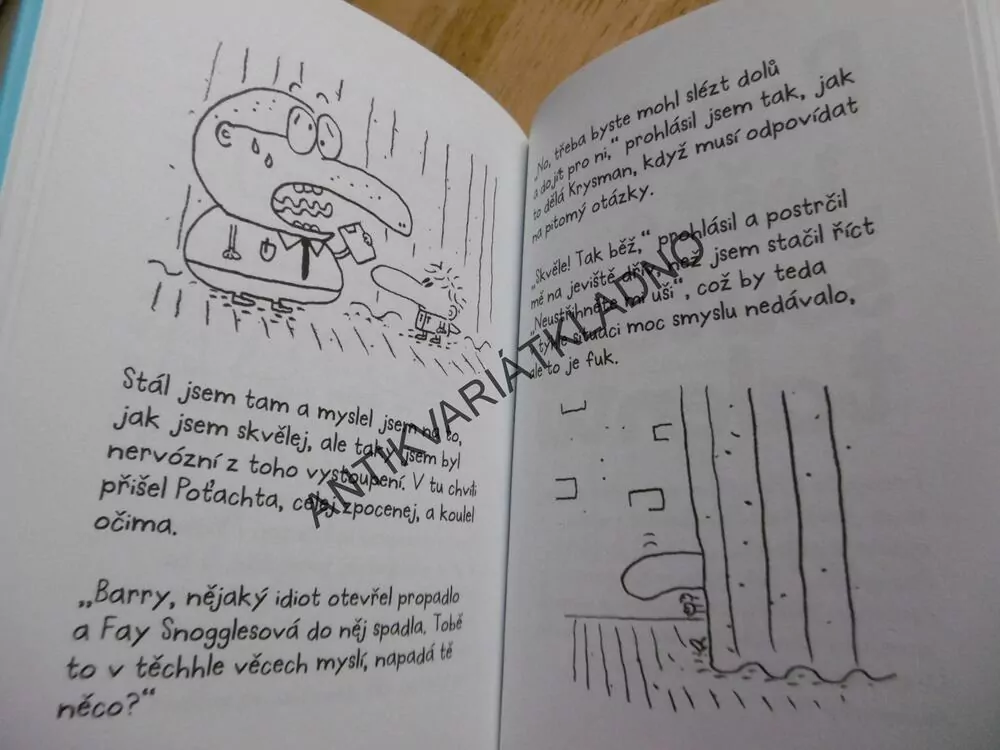 Stál jsem tam a myslel jsem na to,
jak jsem skvělej, ale taky jsem byl
nervózní z toho vystoupení. V tu chvíli
přišel Poťachta, celej zpocenej, a koulel
očima.
„Barry, nějaký idiot otevřel propadlo
a Fay Snogglesová do něj spadla. Tobě
to v těchhle věcech myslí, napadá tě
něco?“
„No, třeba byste mohl slézt dolů
a dojít pro ni,“ prohlásil jsem tak, jak
to dělá Krysman, když musí odpovídat
na pitomý otázky.
„Skvěle! Tak běž,“ prohlásil a postrčil
mě na jeviště dřív, než jsem stačil říct
„Neustřihněte mi uši“, což by teda
v týhle situaci moc smyslu nedávalo,
ale to je fuk.
ANTIKVARIÁTKLADNO